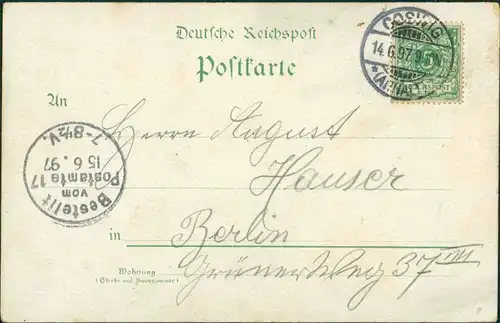 Deutsche Reichspost
Postkarte
COSWIG
14.6.97.
(ANH.)
An
Herrn August
Hauser
in Berlin
Grüner Weg 37 III
Wohnung
(Straße und Hausnummer)
Bestellt
vom
Postamte 17
15.6.97
7-8½V.